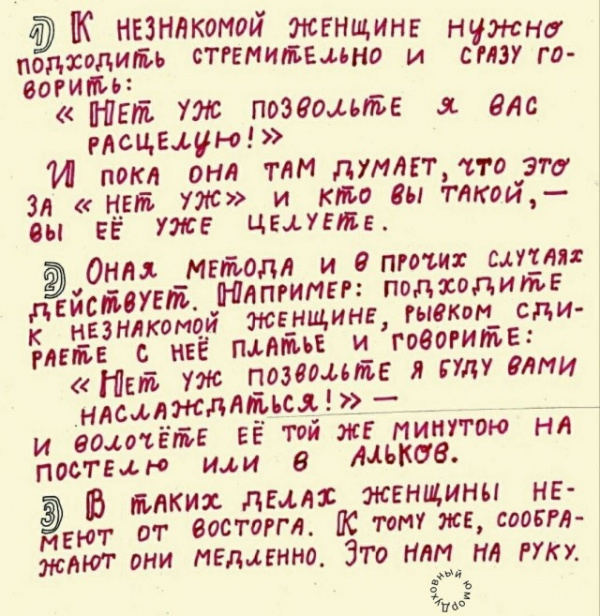 1) К НЕЗНАКОМОЙ ЖЕНЩИНЕ НУЖНО
ПОДХОДИТЬ СТРЕМИТЕЛЬНО И СРАЗУ ГО-
ВОРИТЬ:
« НЕТ УЖ ПОЗВОЛЬТЕ Я ВАС
РАСЦЕЛУЮ!»
И ПОКА ОНА ТАМ ДУМАЕТ, ЧТО ЭТО
ЗА « НЕТ УЖ» И КТО ВЫ ТАКОЙ, —
ВЫ ЕЁ УЖЕ ЦЕЛУЕТЕ.
2) ОНАЯ МЕТОДА И В ПРОЧИХ СЛУЧАЯХ
ДЕЙСТВУЕТ. НАПРИМЕР: ПОДХОДИТЕ
К НЕЗНАКОМОЙ ЖЕНЩИНЕ, РЫВКОМ СДИ-
РАЕТЕ С НЕЁ ПЛАТЬЕ И ГОВОРИТЕ:
« НЕТ УЖ ПОЗВОЛЬТЕ Я БУДУ ВАМИ
НАСЛАЖДАТЬСЯ!» —
И ВОЛОЧЁТЕ ЕЁ ТОЙ ЖЕ МИНУТОЮ НА
ПОСТЕЛЮ ИЛИ В АЛЬКОВ.
3) В ТАКИХ ДЕЛАХ ЖЕНЩИНЫ НЕ-
МЕЮТ ОТ ВОСТОРГА. К ТОМУ ЖЕ, СООБРА-
ЖАЮТ ОНИ МЕДЛЕННО. ЭТО НАМ НА РУКУ.
ДУХОВНЫЙ ЮМОР